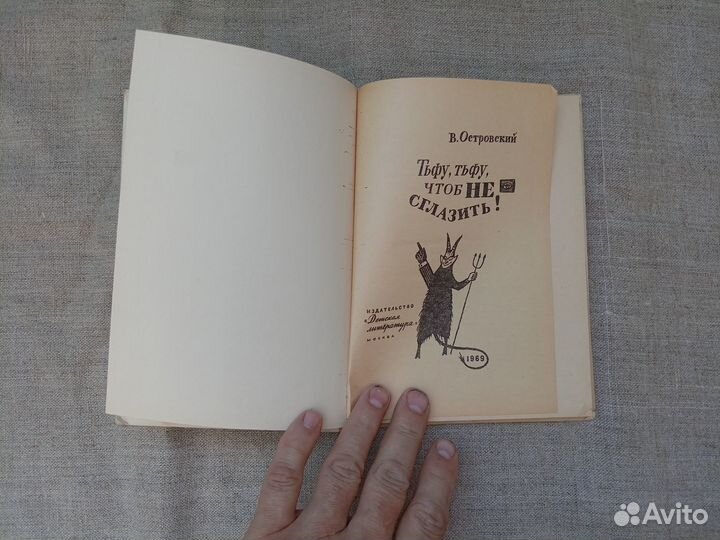 В. Островский
Тьфу, тьфу,
чтоб НЕ
сглазить!
ИЗДАТЕЛЬСТВО
«Детская
литература»
МОСКВА
1969
Avito